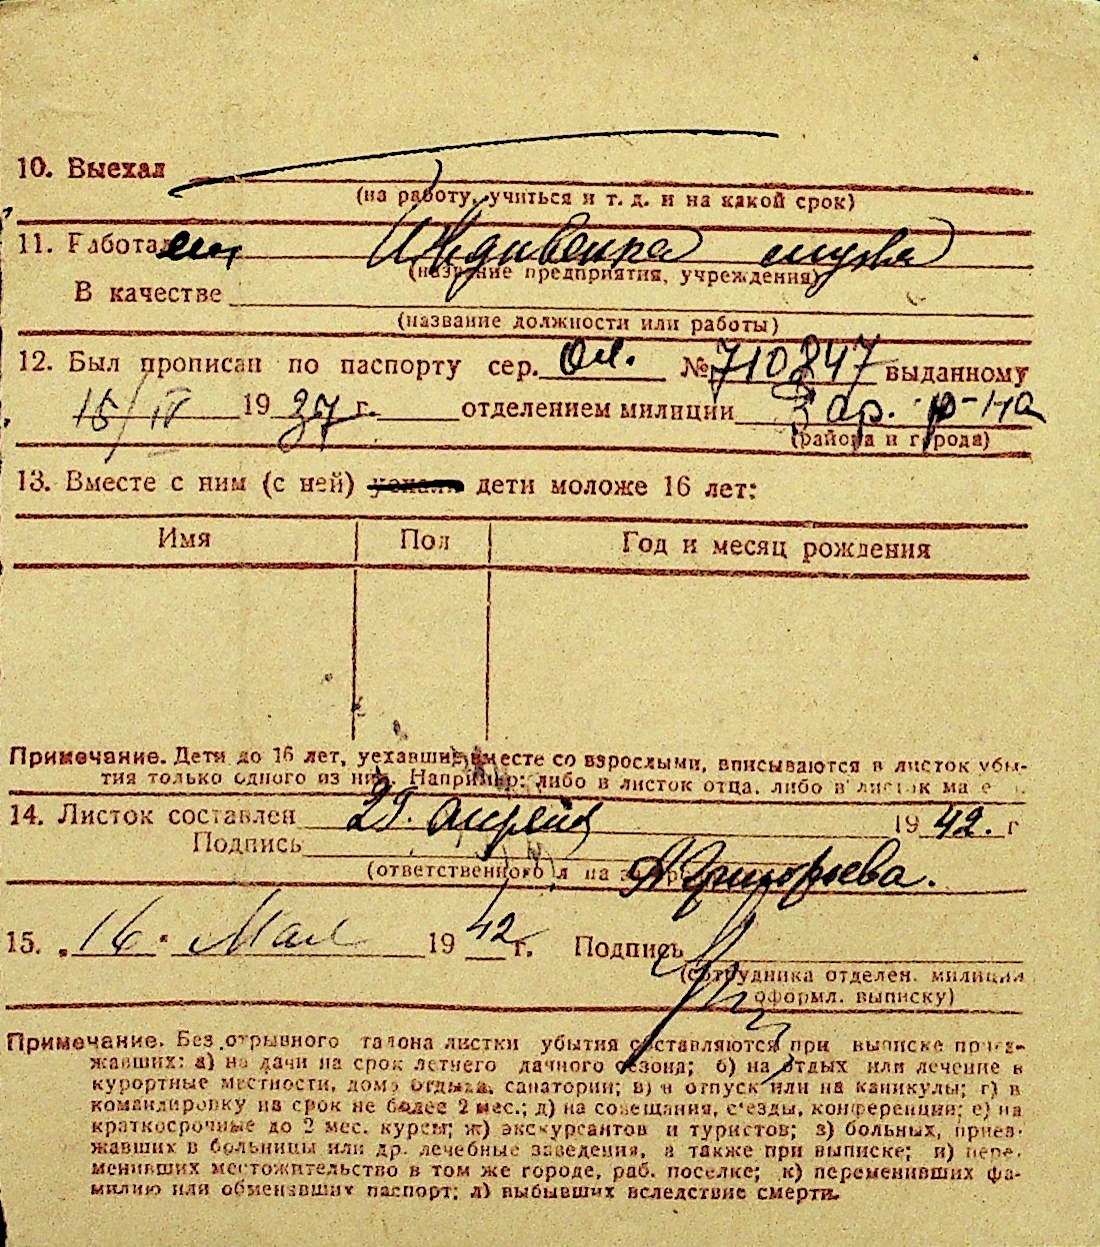 10. Выехал
(на работу, учиться и т. д. и на какой срок)
11. Работал Иждивенка мужа
(название предприятия, учреждения)
В качестве
(название должности или работы)
12. Был прописан по паспорту сер. № 710247 выданному
15/IV 1937 г. отделением милиции р-на
(района и города)
13. Вместе с ним (с ней) уехали дети моложе 16 лет:
Имя Пол Год и месяц рождения
Примечание. Дети до 16 лет, уехавшие вместе со взрослыми, вписываются в листок убы-
тия только одного из них. Например: либо в листок отца, либо в листок
14. Листок составлен апреля 1942. г
Подпись А Григорьева.
(ответственного
15. „16“ Мая 1942 г. Подпись
(сотрудника отделен. милиции
оформл. выписку)
Примечание. Без отрывного талона листки убытия составляются при выписке приез-
жавших: а) на дачи на срок летнего дачного сезона; б) на отдых или лечение в
курортные местности, дома отдыха, санатории; в) в отпуск или на каникулы; г) в
командировку на срок не более 2 мес.; д) на совещания, с'езды, конференции; е) на
краткосрочные до 2 мес. курсы; ж) экскурсантов и туристов; з) больных, приез-
жавших в больницы или др. лечебные заведения, а также при выписке; и) пере-
менивших местожительство в том же городе, раб. поселке; к) переменивших фа-
милию или обменявших паспорт; л) выбывших вследствие смерти.